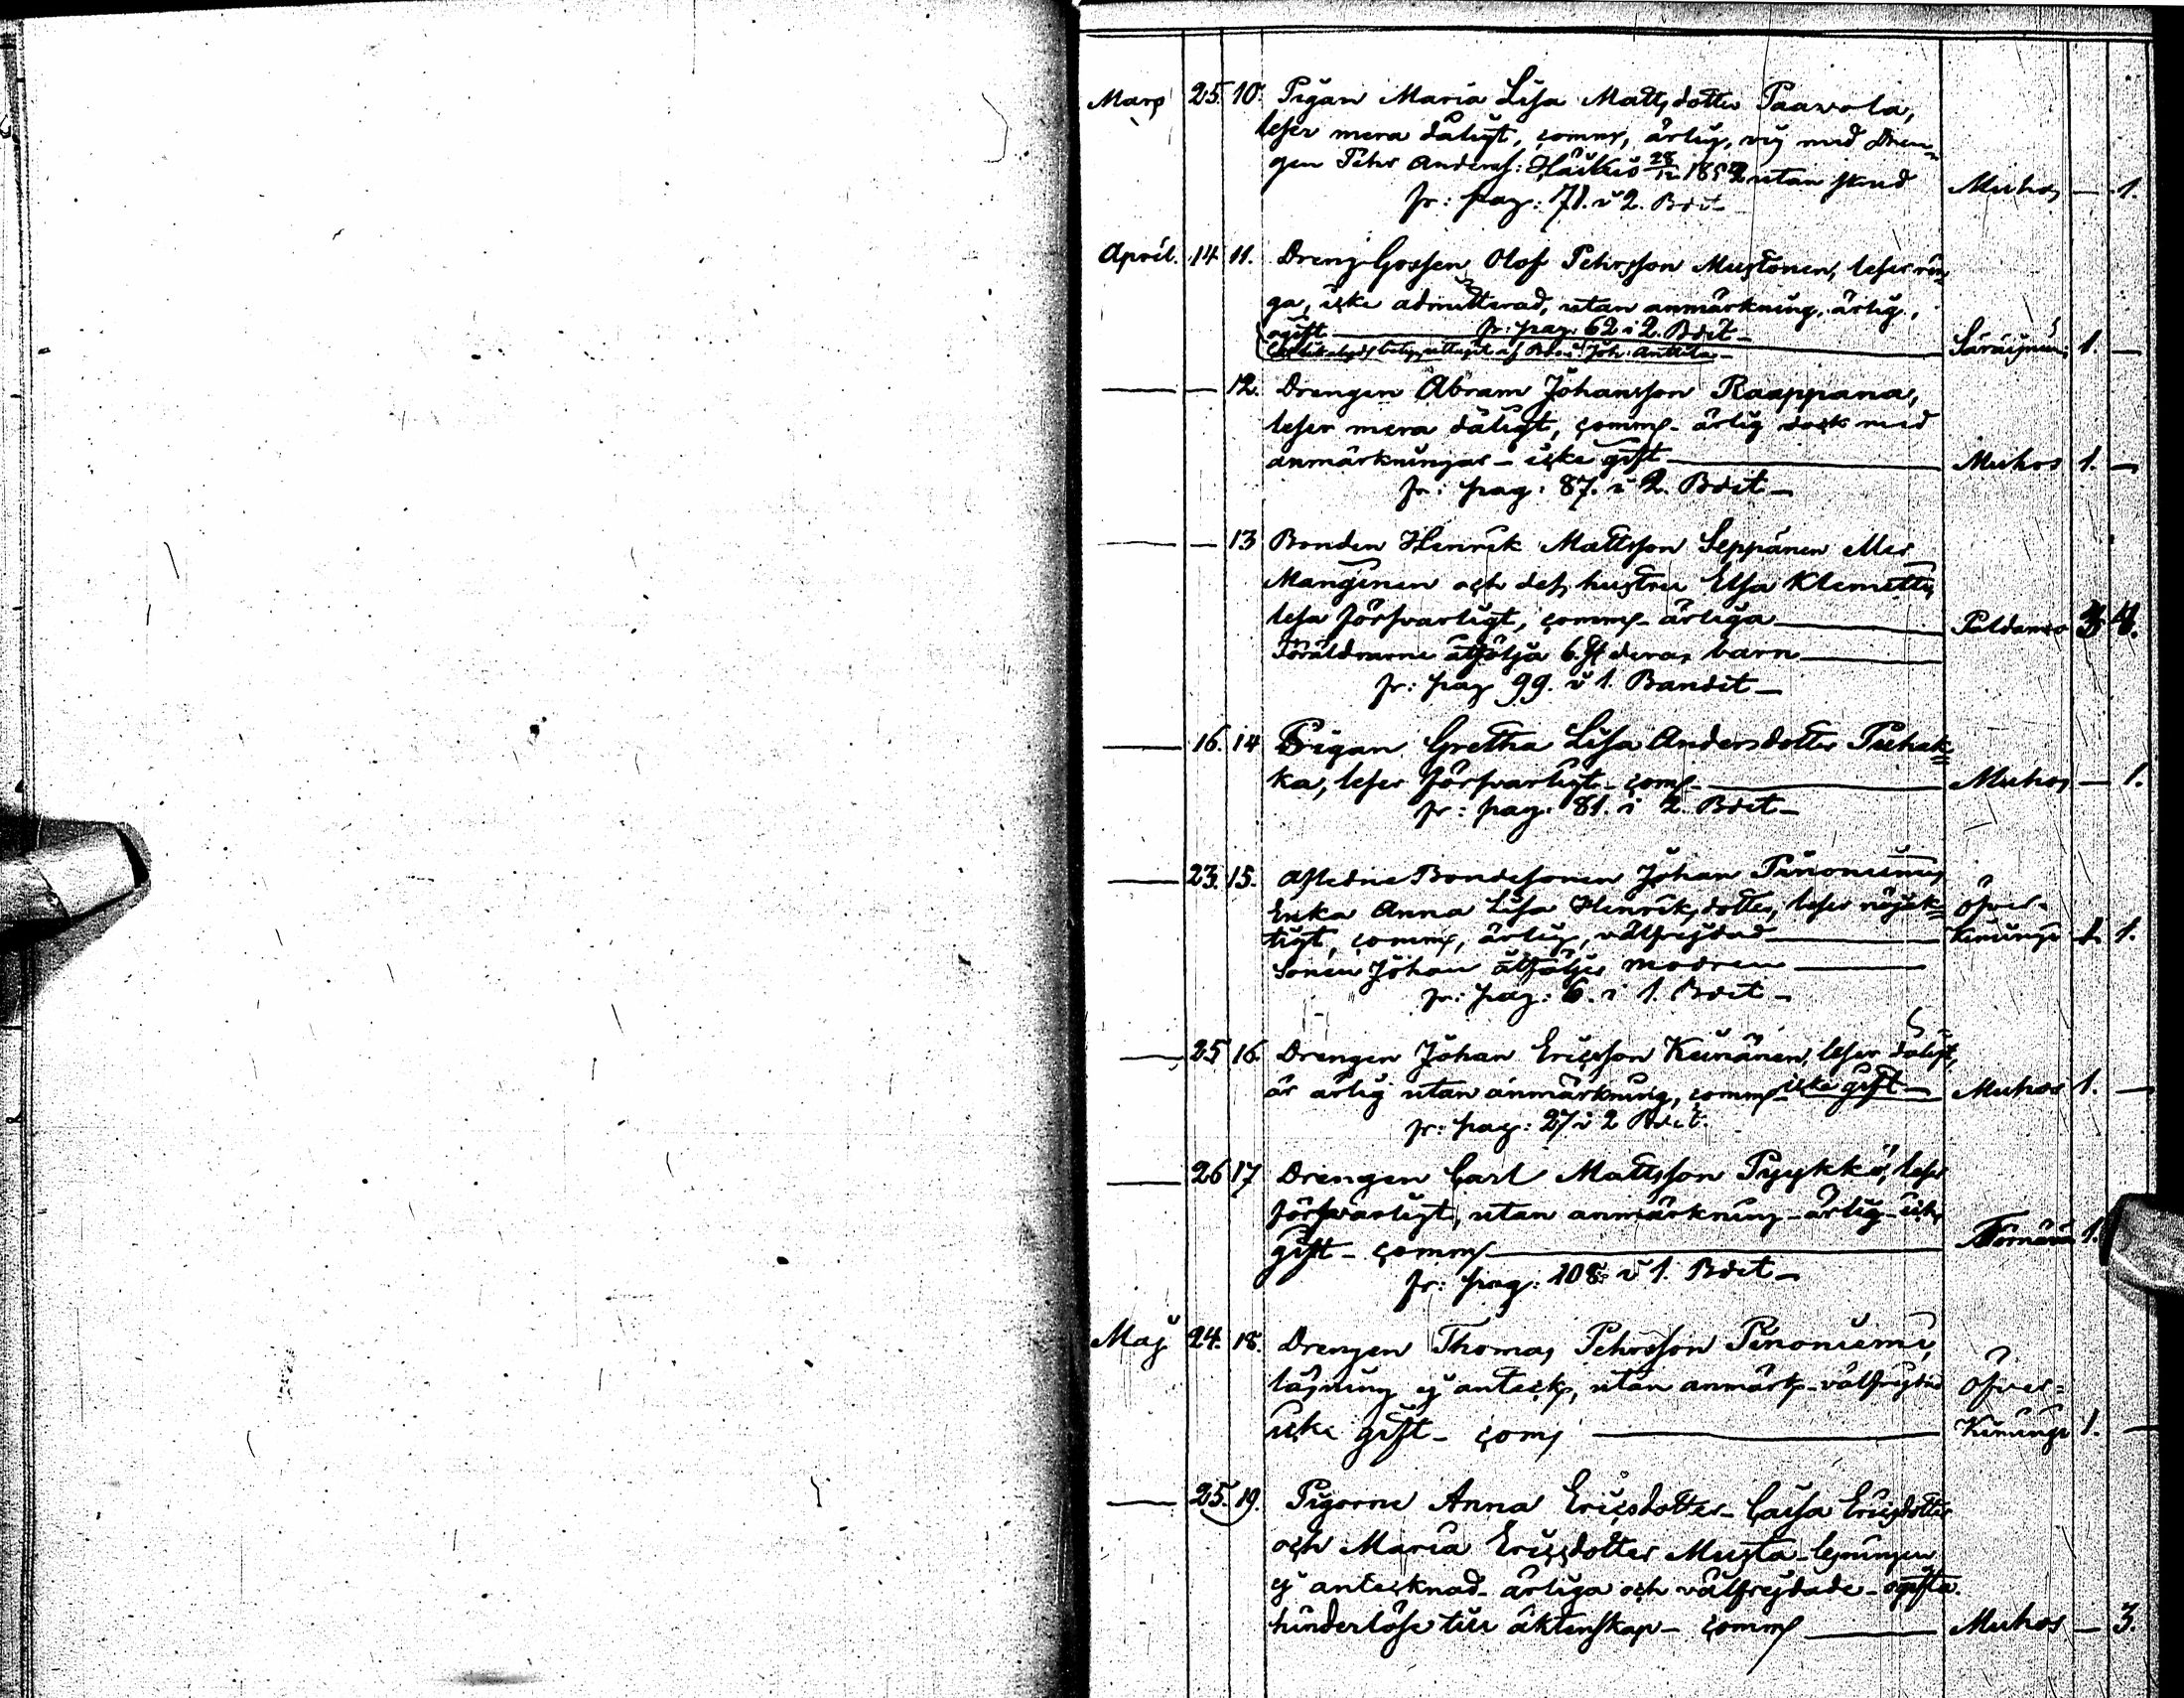 Mars 25. 10. Pigan Maria Lisa Mattsdotter Paavola,
läser mera dåligt, comms, ärlig, vig med Dren-
gen Pehr Anderss: Häikiö 28/12 1852 utan skud
fr: pag: 71. i 2. Bdit Muhos — 1.
April. 14 11. Dreng Gossen Olof Pehrsson Mustonen, läser
ga, icke admitterad, utan anmärkning, ärlig,
ogift fr: pag: 62 i 2. Bdit —
Säräisniemi 1. —
— — 12. Drengen Abram Johansson Raappana,
läser mera dåligt, comms — ärlig dock med
anmärkningar — icke gift — Muhos 1. —
fr: pag: 87. i 2. Bdit —
— — 13 Bonden Henrik Mattsson Seppänen eller
Manginen och dess hustru Elsa Klemetts
läsa försvarligt, comms — ärliga — Paldamo 3 4.
Föräldrarne åtfölja 6. st deras barn —
fr: pag 99. i 1. Bandit —
— 16. 14 Pigan Gretha Lisa Andersdotter Puhak=
ka, läser försvarligt — coms — Muhos — 1.
fr: pag: 81. i 2. Bdit —
— 23. 15. Afledne Bondesonen Johan Pinoniemis
Enka Anna Lisa Henriksdotter, läser nöjak= Öfver-
tigt, comms, ärlig, välfrejdad — Kiminge 1. 1.
Sonen Johan åtföljer modren —
fr: pag: 6. i 1. Bdit —
— 25 16. Drengen Johan Ericsson Keinänen, läser dåligt,
är ärlig utan anmärkning, comms — icke gift — Muhos 1. —
fr: pag: 27 i 2 Bdit.
— 26 17 Drengen Carl Mattsson Pyykkö, läser
försvarligt, utan anmärkning — ärlig — icke
gift — comms — Temmes 1.
fr: pag: 108. i 1. Bdit —
Maj 24. 18. Drengen Thomas Pehrsson Pinoniemi,
läsning ej anteck, utan anmärk — välfrejdad Öfver=
icke gift — coms — Kiminge 1. —
— 25. 19. Pigorne Anna Ericsdotter — Caisa Ericsdotter
och Maria Ericsdotter Musta — läsningen
ej antecknad — ärliga och välfrejdade — ogifta.
hinderlöse till äktenskap — comms — Muhos — 3.